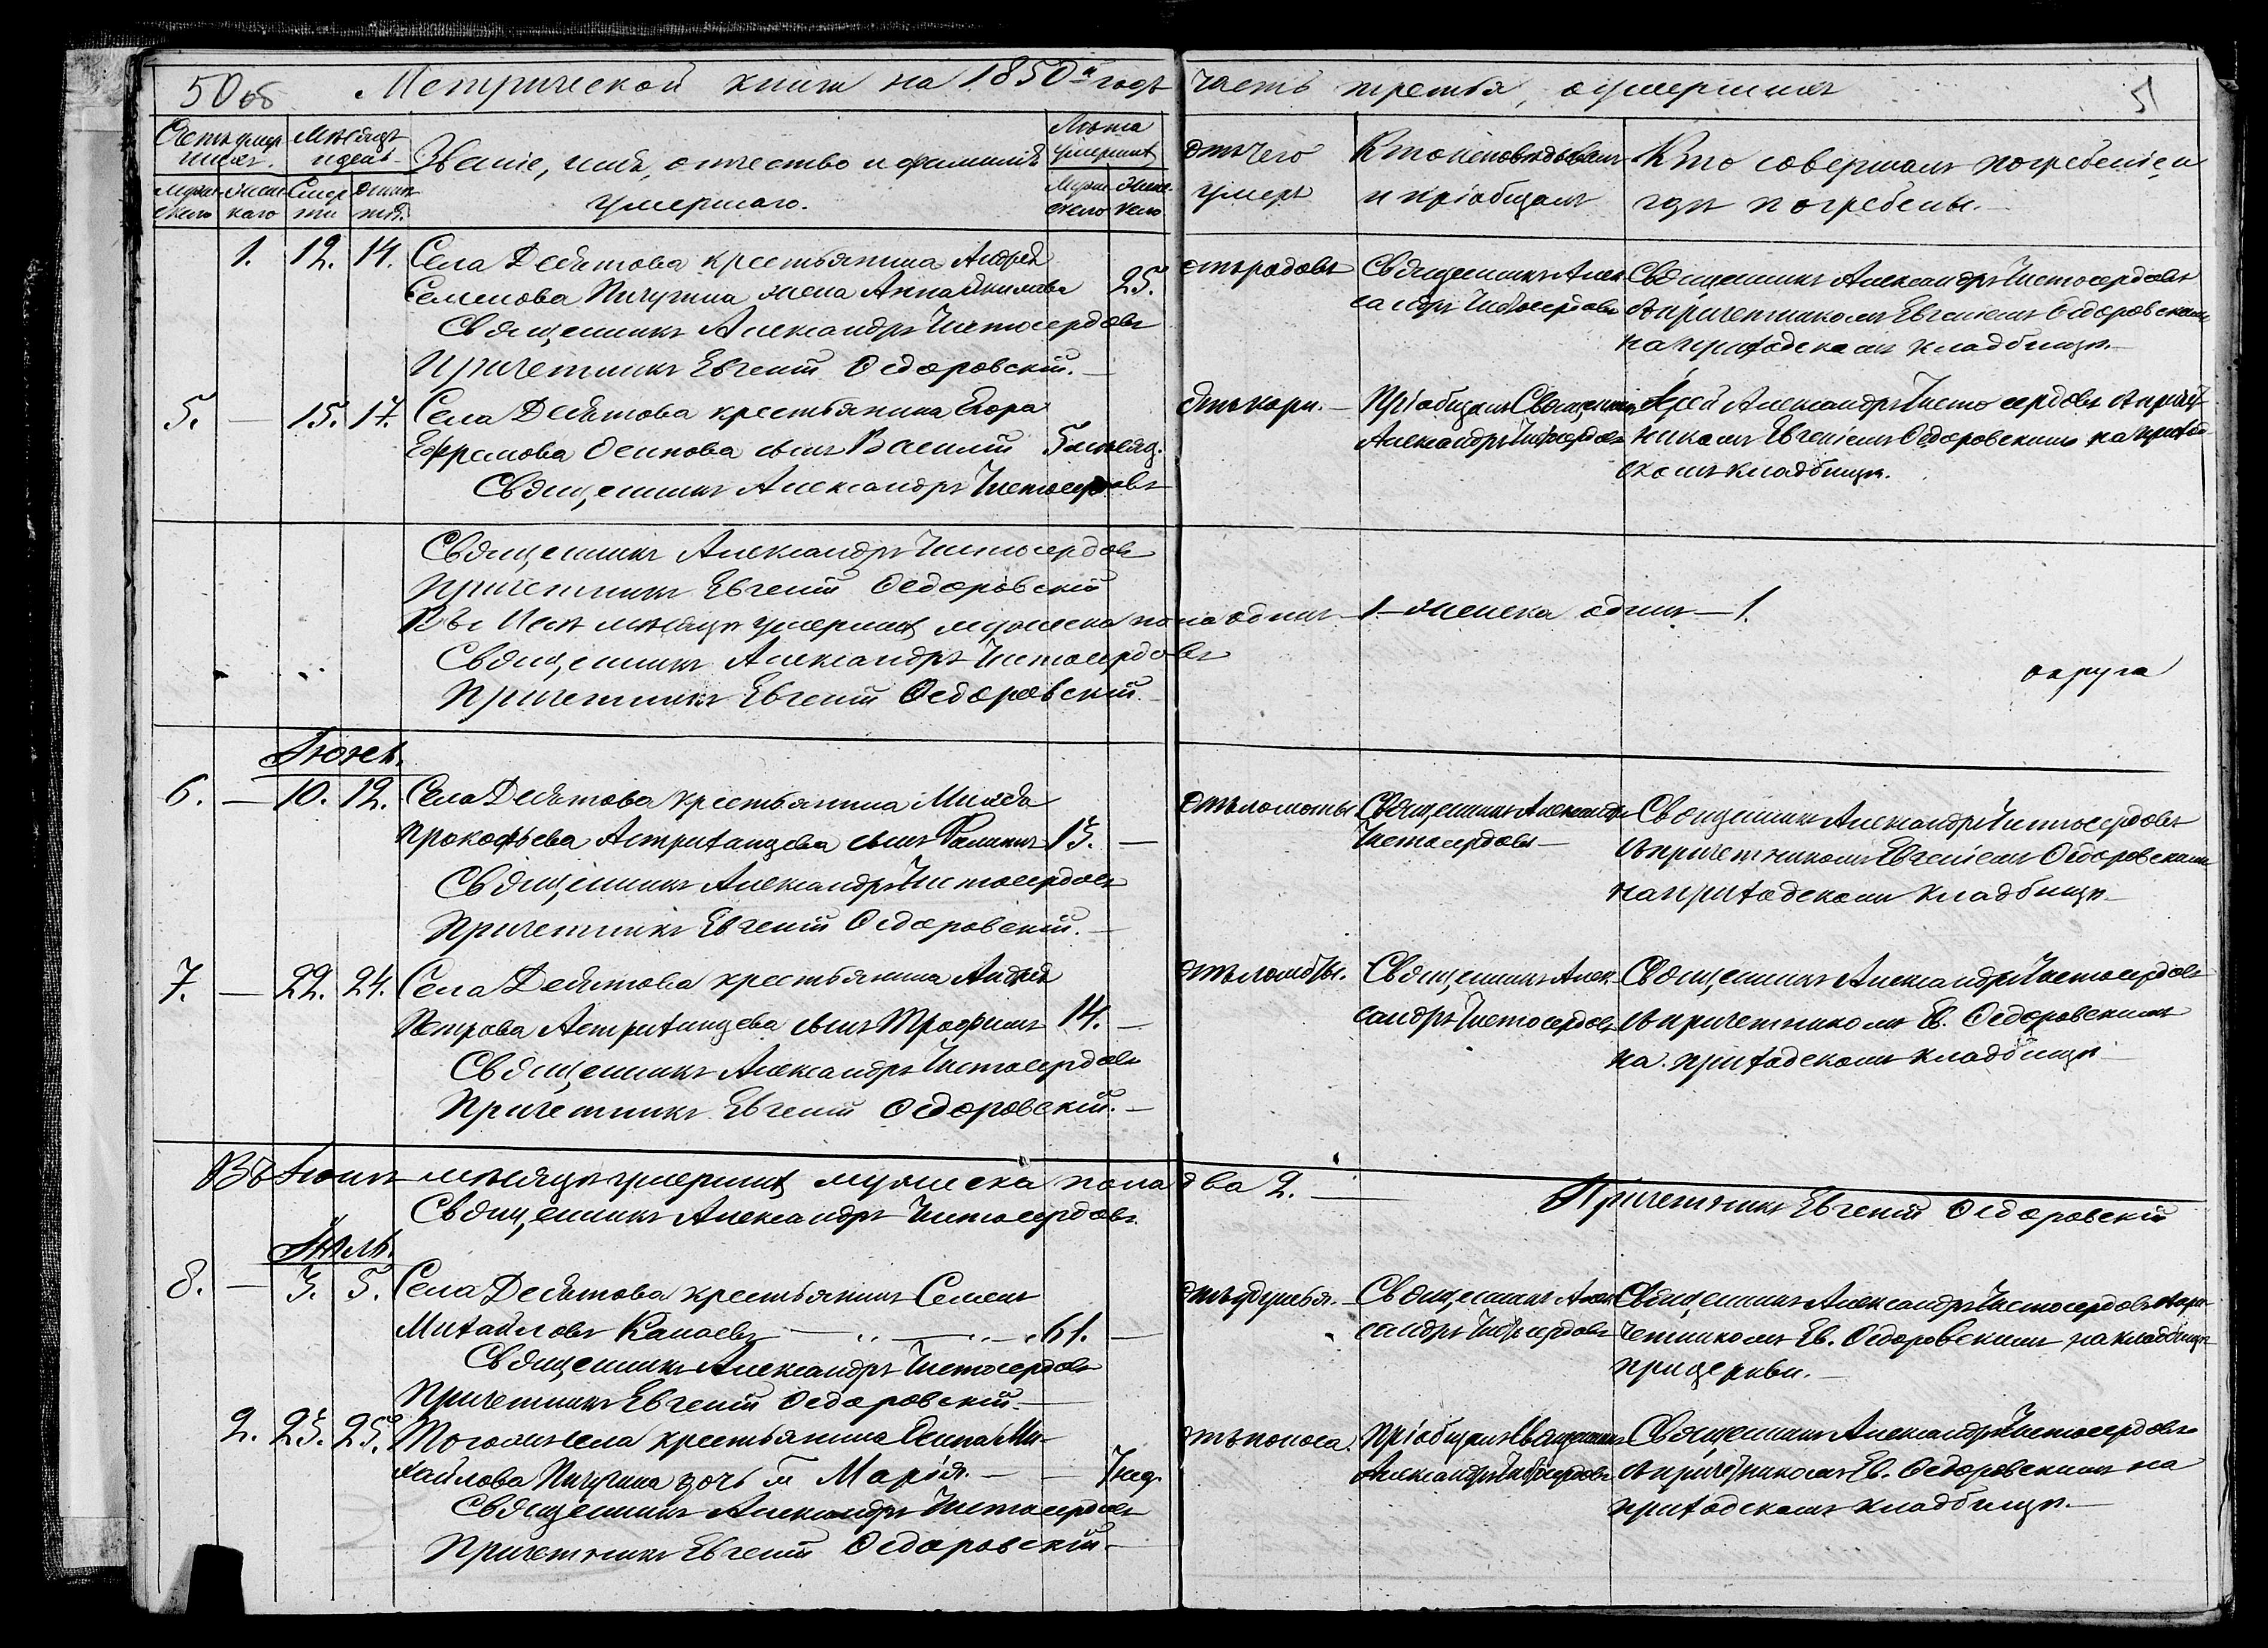 50 об
Метрической книги на 1850й годъ часть третья, о умершихъ
51
Счетъ умер
шихъ.
Мѣсяцъ
и день
Званіе, имя, отчество и фамилія
умершаго.
Лѣта
умершихъ
Отъ чего
умеръ
Кто исповѣдывалъ
и пріобщалъ
Кто совершалъ погребеніе и
гдѣ погребены.
Муже
скаго
Женс
каго
Смер
ти
Муже
скаго
Женс
каго
1. 12. 14. Села Девятова крестьянина Андрея
Семенова Пичугина жена Анна 25.
Священникъ Александръ Чистосердовъ
Причетникъ Евгеній Ѳедоровскій.
отъ родовъ
Священникъ Алек
сандръ Чистосердовъ
Священникъ Александръ Чистосердовъ
съ причетникомъ Евгеніемъ Ѳедоровскимъ
на приходскомъ кладбищѣ.
5. — 15. 17. Села Девятова крестьянина Егора
Ефремова Осипова сынъ Василій 5 мѣсяц.
Священникъ Александръ Чистосердовъ
Отъ кори.
Пріобщалъ Священникъ
Александръ Чистосердовъ
Іерей Александръ Чистосердовъ съ причет
никомъ Евгеніемъ Ѳедоровскимъ на приход
скомъ кладбищѣ.
Священникъ Александръ Чистосердовъ
Причетникъ Евгеній Ѳедоровскій
Въ Маѣ мѣсяцѣ умершихъ мужеска пола одинъ — 1 — женска одинъ — 1.
Священникъ Александръ Чистосердовъ
Причетникъ Евгеній Ѳедоровскій.
округа
Іюнь.
6. — 10. 12. Села Девятова крестьянина Миная
Прокофьева Астраханцева сынъ 13. —
Священникъ Александръ Чистосердовъ
Причетникъ Евгеній Ѳедоровскій.
Отъ ломоты
Священникъ Александръ
Чистосердовъ —
Священникъ Александръ Чистосердовъ
съ причетникомъ Евгеніемъ Ѳедоровскимъ
на приходскомъ кладбищѣ.
7. — 22. 24. Села Девятова крестьянина Андрея
Петрова Астраханцева сынъ Трофимъ 14. —
Священникъ Александръ Чистосердовъ
Причетникъ Евгеній Ѳедоровскій.
отъ ломоты.
Священникъ Алек
сандръ Чистосердовъ
Священникъ Александръ Чистосердовъ
съ причетникомъ Ев. Ѳедоровскимъ
на приходскомъ кладбищѣ
Въ Іюнѣ мѣсяцѣ умершихъ мужеска пола два 2.
Священникъ Александръ Чистосердовъ.
Причетникъ Евгеній Ѳедоровскій
Іюль.
8. — 3. 5. Села Девятова крестьянинъ Семенъ
Михайловъ Канаевъ 61. —
Священникъ Александръ Чистосердовъ
Причетникъ Евгеній Ѳедоровскій.
отъ удушья.
Священникъ Алек
сандръ Чистосердовъ
Священникъ Александръ Чистосердовъ съ при
четникомъ Ев. Ѳедоровскимъ на кладбищѣ
при церкви.
2. 23. 25. Того же села крестьянина Осипа Ми-
хайлова Пичугина дочь Марія. — 7 нед.
Священникъ Александръ Чистосердовъ
Причетникъ Евгеній Ѳедоровскій.
отъ поноса.
Пріобщалъ Священникъ
Александръ Чистосердовъ
Священникъ Александръ Чистосердовъ
съ причетникомъ Ев. Ѳедоровскимъ на
приходскомъ кладбищѣ.